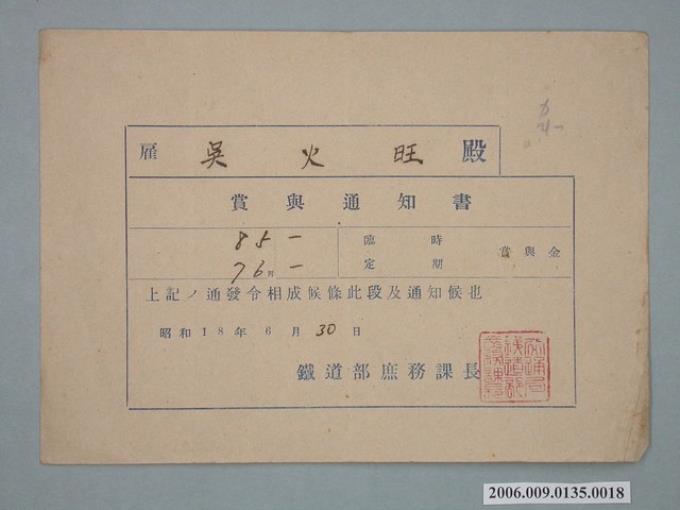 雇 吳火旺 殿
賞與通知書
85 一 臨時
賞與金
76円 一 定期
上記ノ通發令相成候條此段及通知候也
昭和18年6月30日
鐵道部庶務課長
2006.009.0135.0018